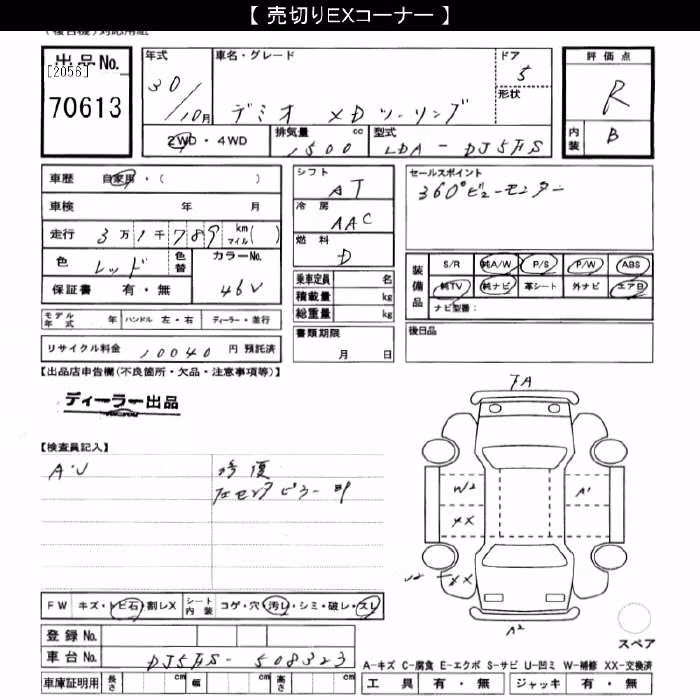 【 売切りEXコーナー 】
出品No.
[2056]
70613
年式
30/10月
車名・グレード
デミオ XDツーリング
ドア
5
形状
評価点
R
内装
B
2WD・4WD
排気量 cc
1500
型式
LDA-DJ5FS
車歴 自家用・( )
車検 年 月
走行 3万1千789 km マイル( )
色 レッド 色替
カラーNo. 46V
保証書 有・無
モデル年式 年 ハンドル 左・右 ディーラー・並行
リサイクル料金 10040 円 預託済
シフト
AT
冷房
AAC
燃料
D
乗車定員 名
積載量 kg
総重量 kg
書類期限
月 日
セールスポイント
360°ビューモニター
装備品
S/R 純A/W P/S P/W ABS
純TV 純ナビ 革シート 外ナビ エアB
ナビ型番:
後日品
【出品店申告欄(不良箇所・欠品・注意事項等)】
ディーラー出品
【検査員記入】
A・U
修復
左センタピラー
FA
W2
A1
XX
XX
A2
スペア
FW キズ・トビ石・割レX シート内装 コゲ・穴・汚レ・シミ・破レ・スレ
登録No.
車台No. DJ5FS-508323
車庫証明用 長さ cm 幅 cm 高さ cm
A-キズ C-腐食 E-エクボ S-サビ U-凹ミ W-補修 XX-交換済
工具 有・無 ジャッキ 有・無